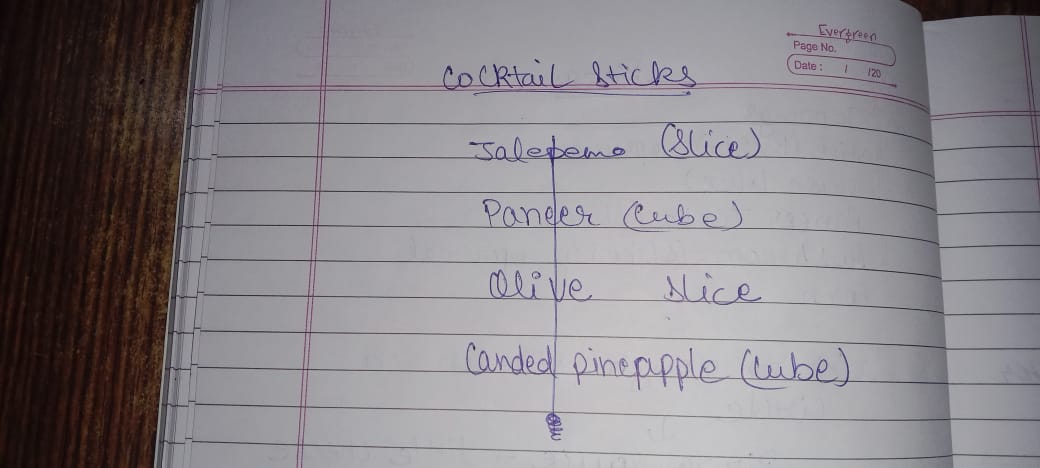 Evergreen
Page No.
Date : / /20
Cocktail Sticks
Jalepeno (Slice)
Paneer (Cube)
Olive Slice
Canded pineapple (Cube)